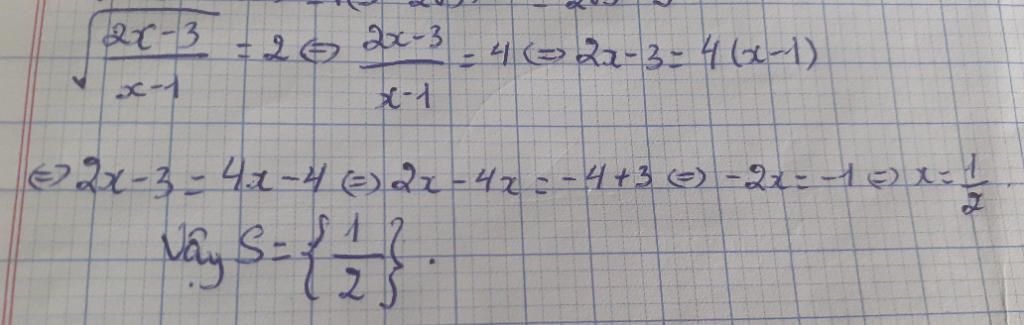 √((2x-3)/(x-1)) = 2 <=> (2x-3)/(x-1) = 4 <=> 2x-3 = 4(x-1)
<=> 2x-3 = 4x-4 <=> 2x-4x = -4+3 <=> -2x = -1 <=> x = 1/2.
Vậy S = {1/2}.